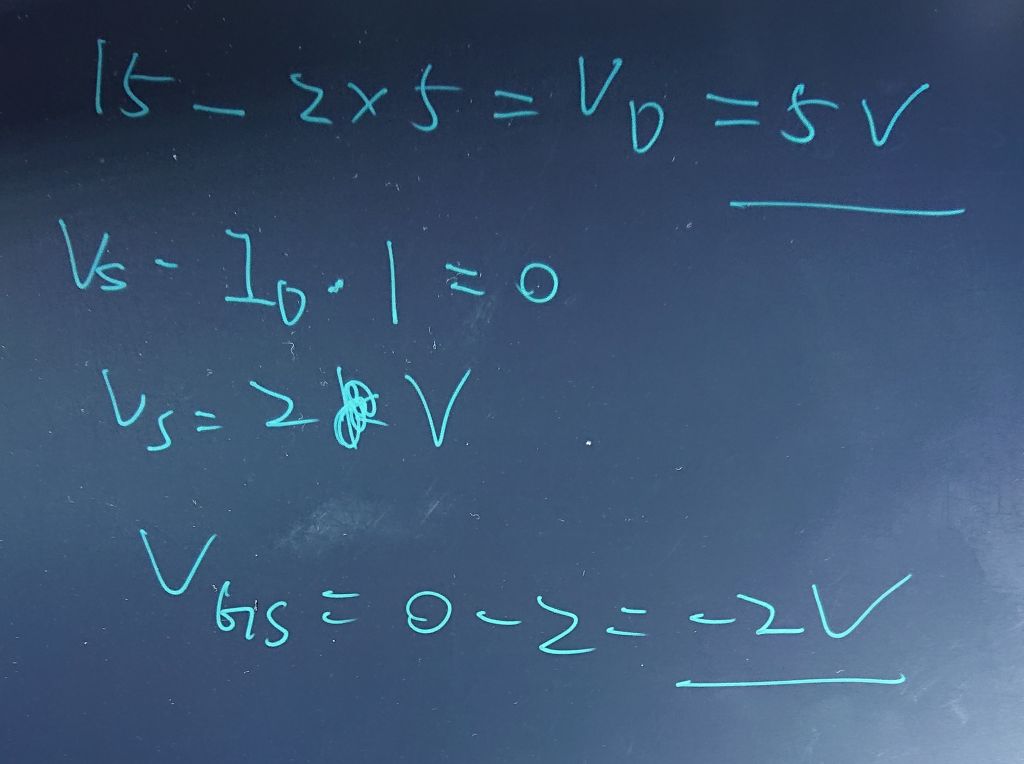 15 - 2 x 5 = VD = 5 V
Vs - ID · 1 = 0
Vs = 2 V
VGS = 0 - 2 = -2 V